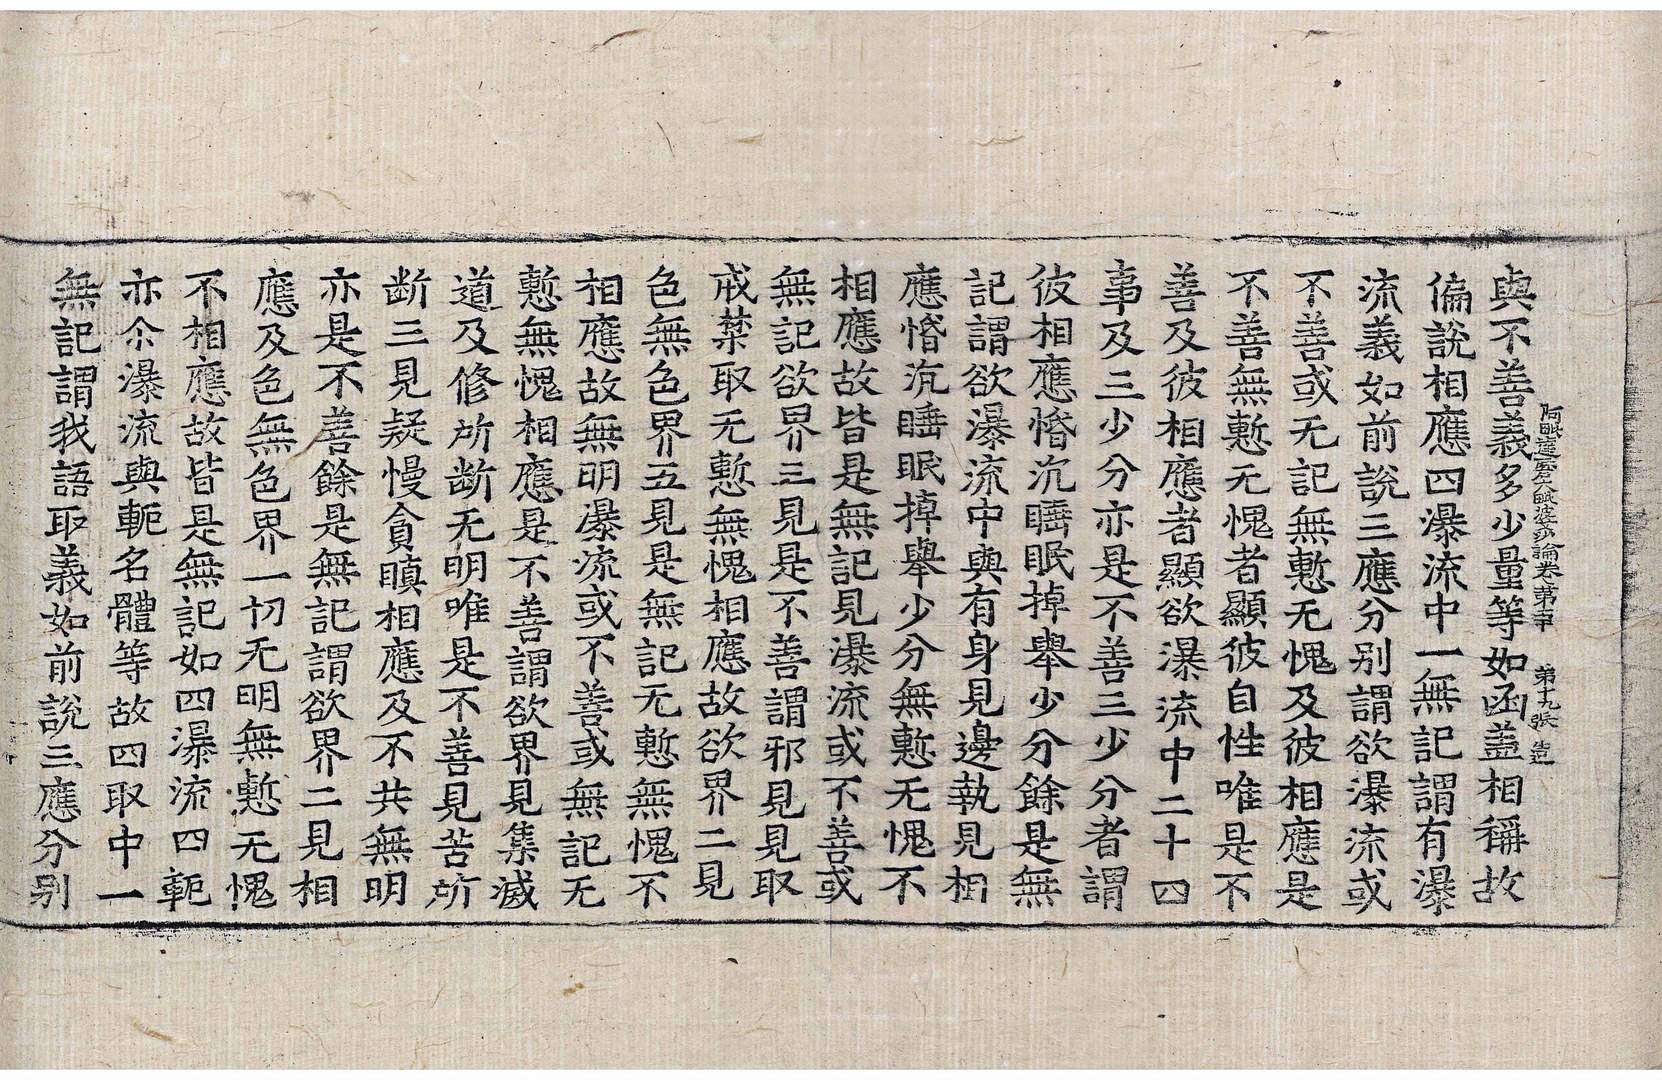 阿毗達磨大毗婆沙論卷第五十 第十九張 造
與不善義多少量等如函蓋相稱故
偏說相應四瀑流中一無記謂有瀑
流義如前說三應分別謂欲瀑流或
不善或无記無慙无愧及彼相應是
不善無慙无愧者顯彼自性唯是不
善及彼相應者顯欲瀑流中二十四
事及三少分亦是不善三少分者謂
彼相應惛沉睡眠掉舉少分餘是無
記謂欲瀑流中與有身見邊執見相
應惛沉睡眠掉舉少分無慙无愧不
相應故皆是無記見瀑流或不善或
無記欲界三見是不善謂邪見見取
戒禁取无慙無愧相應故欲界二見
色無色界五見是無記无慙無愧不
相應故無明瀑流或不善或無記无
慙無愧相應是不善謂欲界見集滅
道及修所断无明唯是不善見苦所
断三見疑慢貪瞋相應及不共無明
亦是不善餘是無記謂欲界二見相
應及色無色界一切无明無慙无愧
不相應故皆是無記如四瀑流四軛
亦尒瀑流與軛名體等故四取中一
無記謂我語取義如前說三應分別